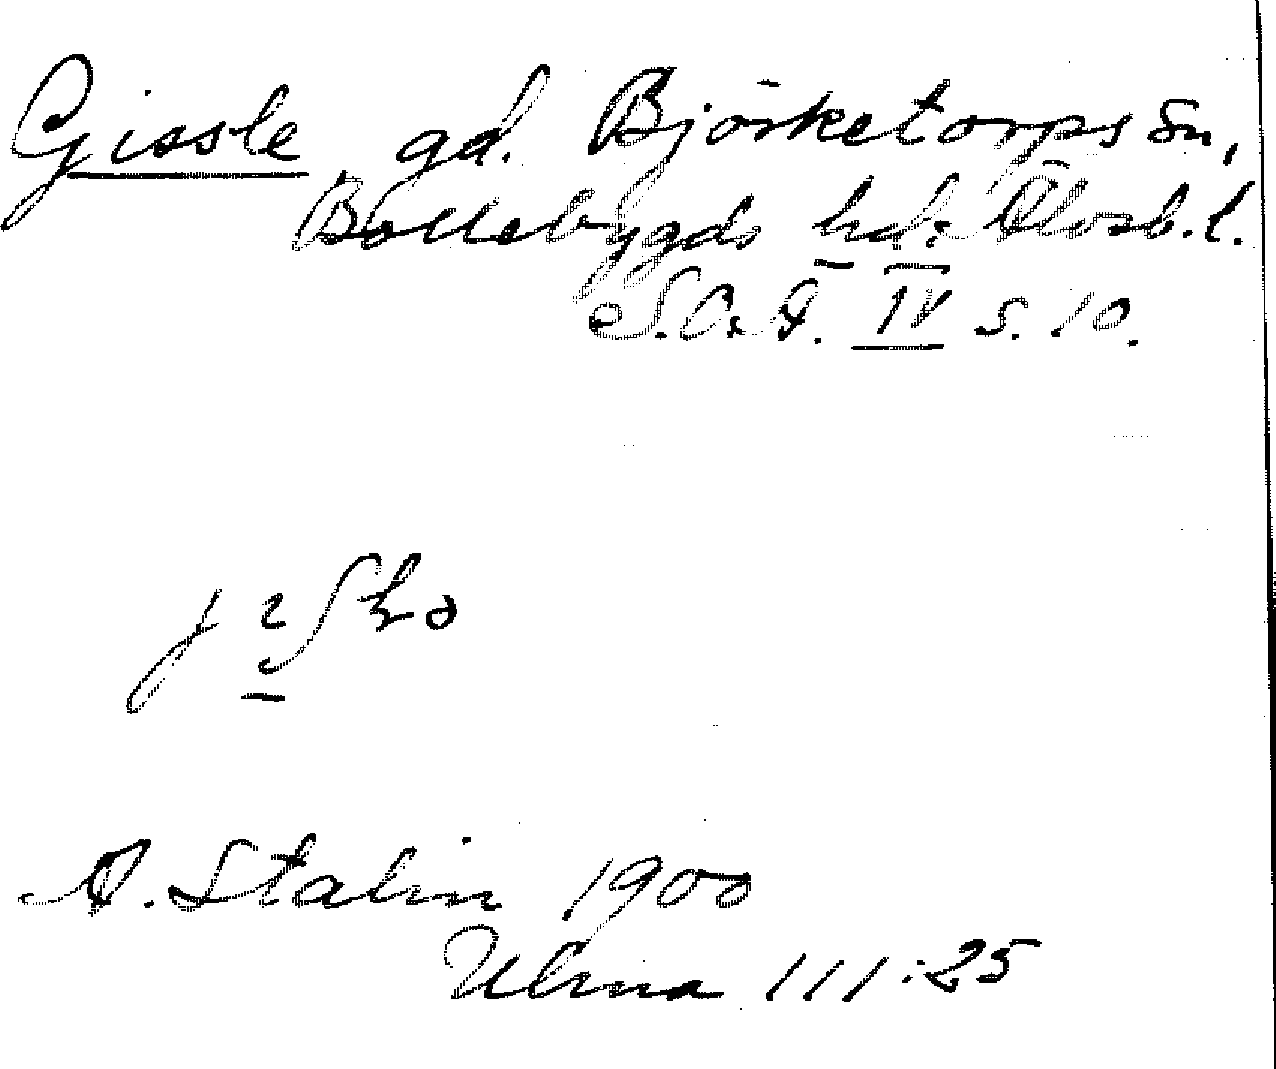 Gissle gd. Björketorps sn,
Bollebygds hd; Älvsb. l.
S.O.Ä. IV s. 10.
A. Stalin 1900
Ulma 111:25